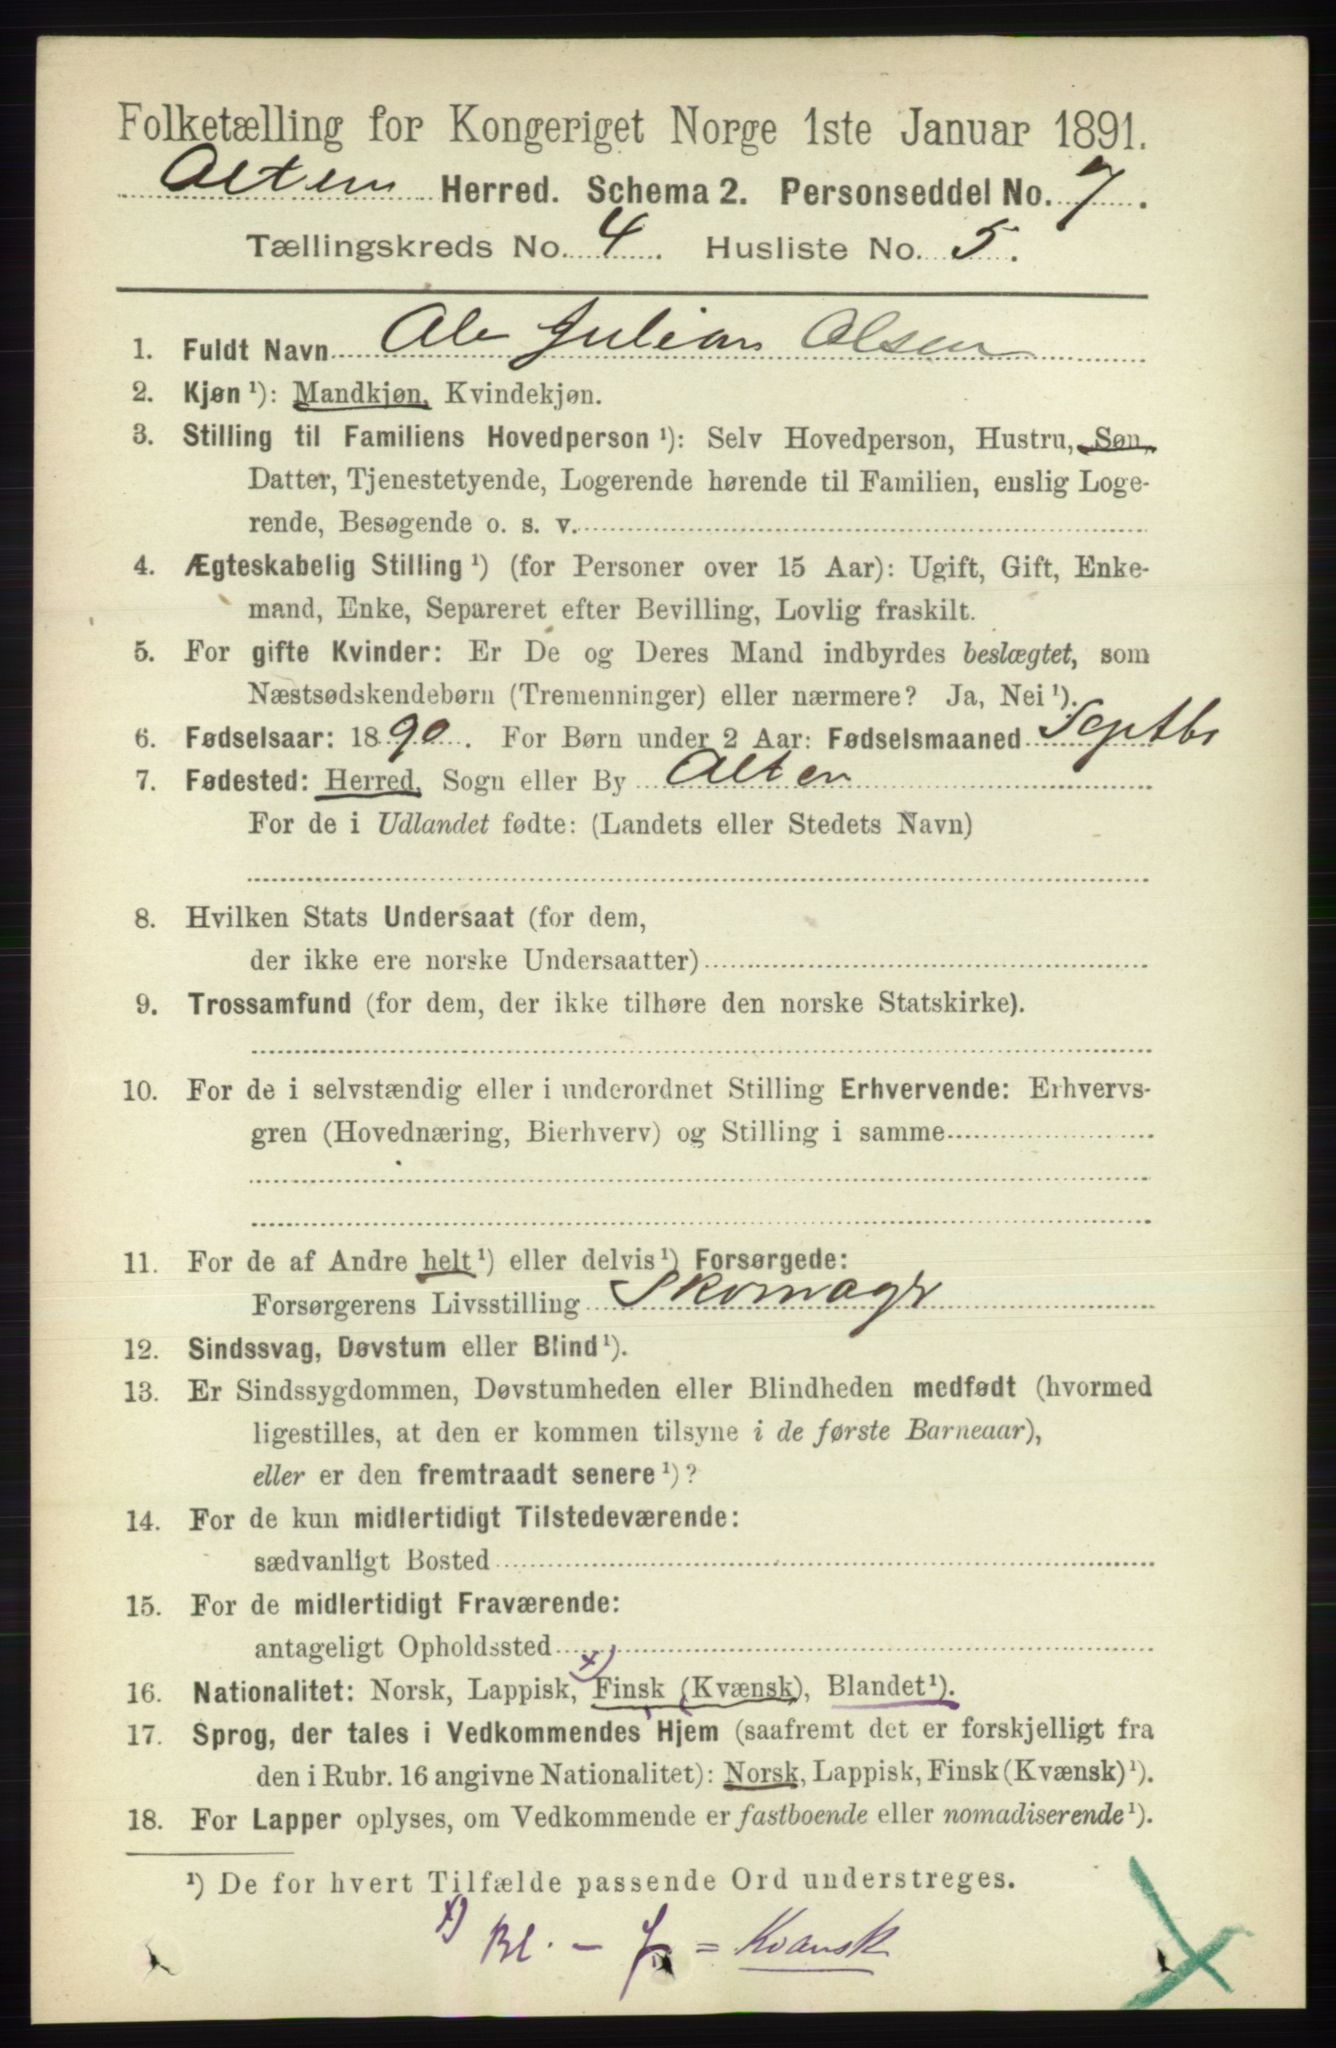 Folketælling for Kongeriget Norge 1ste Januar 1891.
Alten Herred. Schema 2. Personseddel No. 7.
Tællingskreds No. 4. Husliste No. 5.
1. Fuldt Navn Ole Julian Olsen
2. Kjøn ¹): Mandkjøn, Kvindekjøn.
3. Stilling til Familiens Hovedperson ¹): Selv Hovedperson, Hustru, Søn,
Datter, Tjenestetyende, Logerende hørende til Familien, enslig Loge-
rende, Besøgende o. s. v.
4. Ægteskabelig Stilling ¹) (for Personer over 15 Aar): Ugift, Gift, Enke-
mand, Enke, Separeret efter Bevilling, Lovlig fraskilt.
5. For gifte Kvinder: Er De og Deres Mand indbyrdes beslægtet, som
Næstsødskendebørn (Tremenninger) eller nærmere? Ja, Nei ¹).
6. Fødselsaar: 1890. For Børn under 2 Aar: Fødselsmaaned Septbr
7. Fødested: Herred, Sogn eller By Alten
For de i Udlandet fødte: (Landets eller Stedets Navn)
8. Hvilken Stats Undersaat (for dem,
der ikke ere norske Undersaatter)
9. Trossamfund (for dem, der ikke tilhøre den norske Statskirke).
10. For de i selvstændig eller i underordnet Stilling Erhvervende: Erhvervs-
gren (Hovednæring, Bierhverv) og Stilling i samme
11. For de af Andre helt ¹) eller delvis ¹) Forsørgede:
Forsørgerens Livsstilling Skomagr
12. Sindssvag, Døvstum eller Blind ¹).
13. Er Sindssygdommen, Døvstumheden eller Blindheden medfødt (hvormed
ligestilles, at den er kommen tilsyne i de første Barneaar),
eller er den fremtraadt senere ¹)?
14. For de kun midlertidigt Tilstedeværende:
sædvanligt Bosted
15. For de midlertidigt Fraværende:
antageligt Opholdssted
16. Nationalitet: Norsk, Lappisk, x) Finsk (Kvænsk), Blandet ¹).
17. Sprog, der tales i Vedkommendes Hjem (saafremt det er forskjelligt fra
den i Rubr. 16 angivne Nationalitet): Norsk, Lappisk, Finsk (Kvænsk) ¹).
18. For Lapper oplyses, om Vedkommende er fastboende eller nomadiserende ¹).
¹) De for hvert Tilfælde passende Ord understreges.
x) Bl. – f = Kvænsk